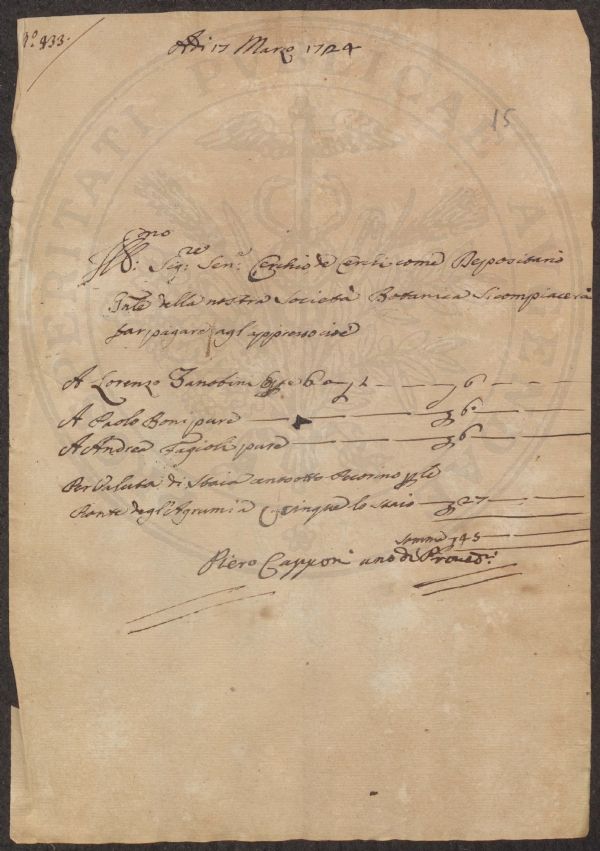 N.º 433.
Adi 17 Marzo 1724
15
Ill:mo Sig:re Sen:re Cerchio de Cerchi come Depositario
Gnle della nostra Società Botanica Si compiacerà
far pagare agl'appresso cioè
A Lorenzo Zanobini 6
A Paolo Boni pure 6
A Andrea Fagioli pure 6
Per Valuta di Staia Pecorino p le
Piante degl'Agrumi a Cinque lo Staio 27
Somma 45
Piero Capponi uno di Proved:ri
DEPUTATI PUBLICAE